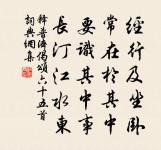 經行及坐臥
常在於其中
要識其中事
長汀江水東
釋普濟偈頌六十五首
詞典網集